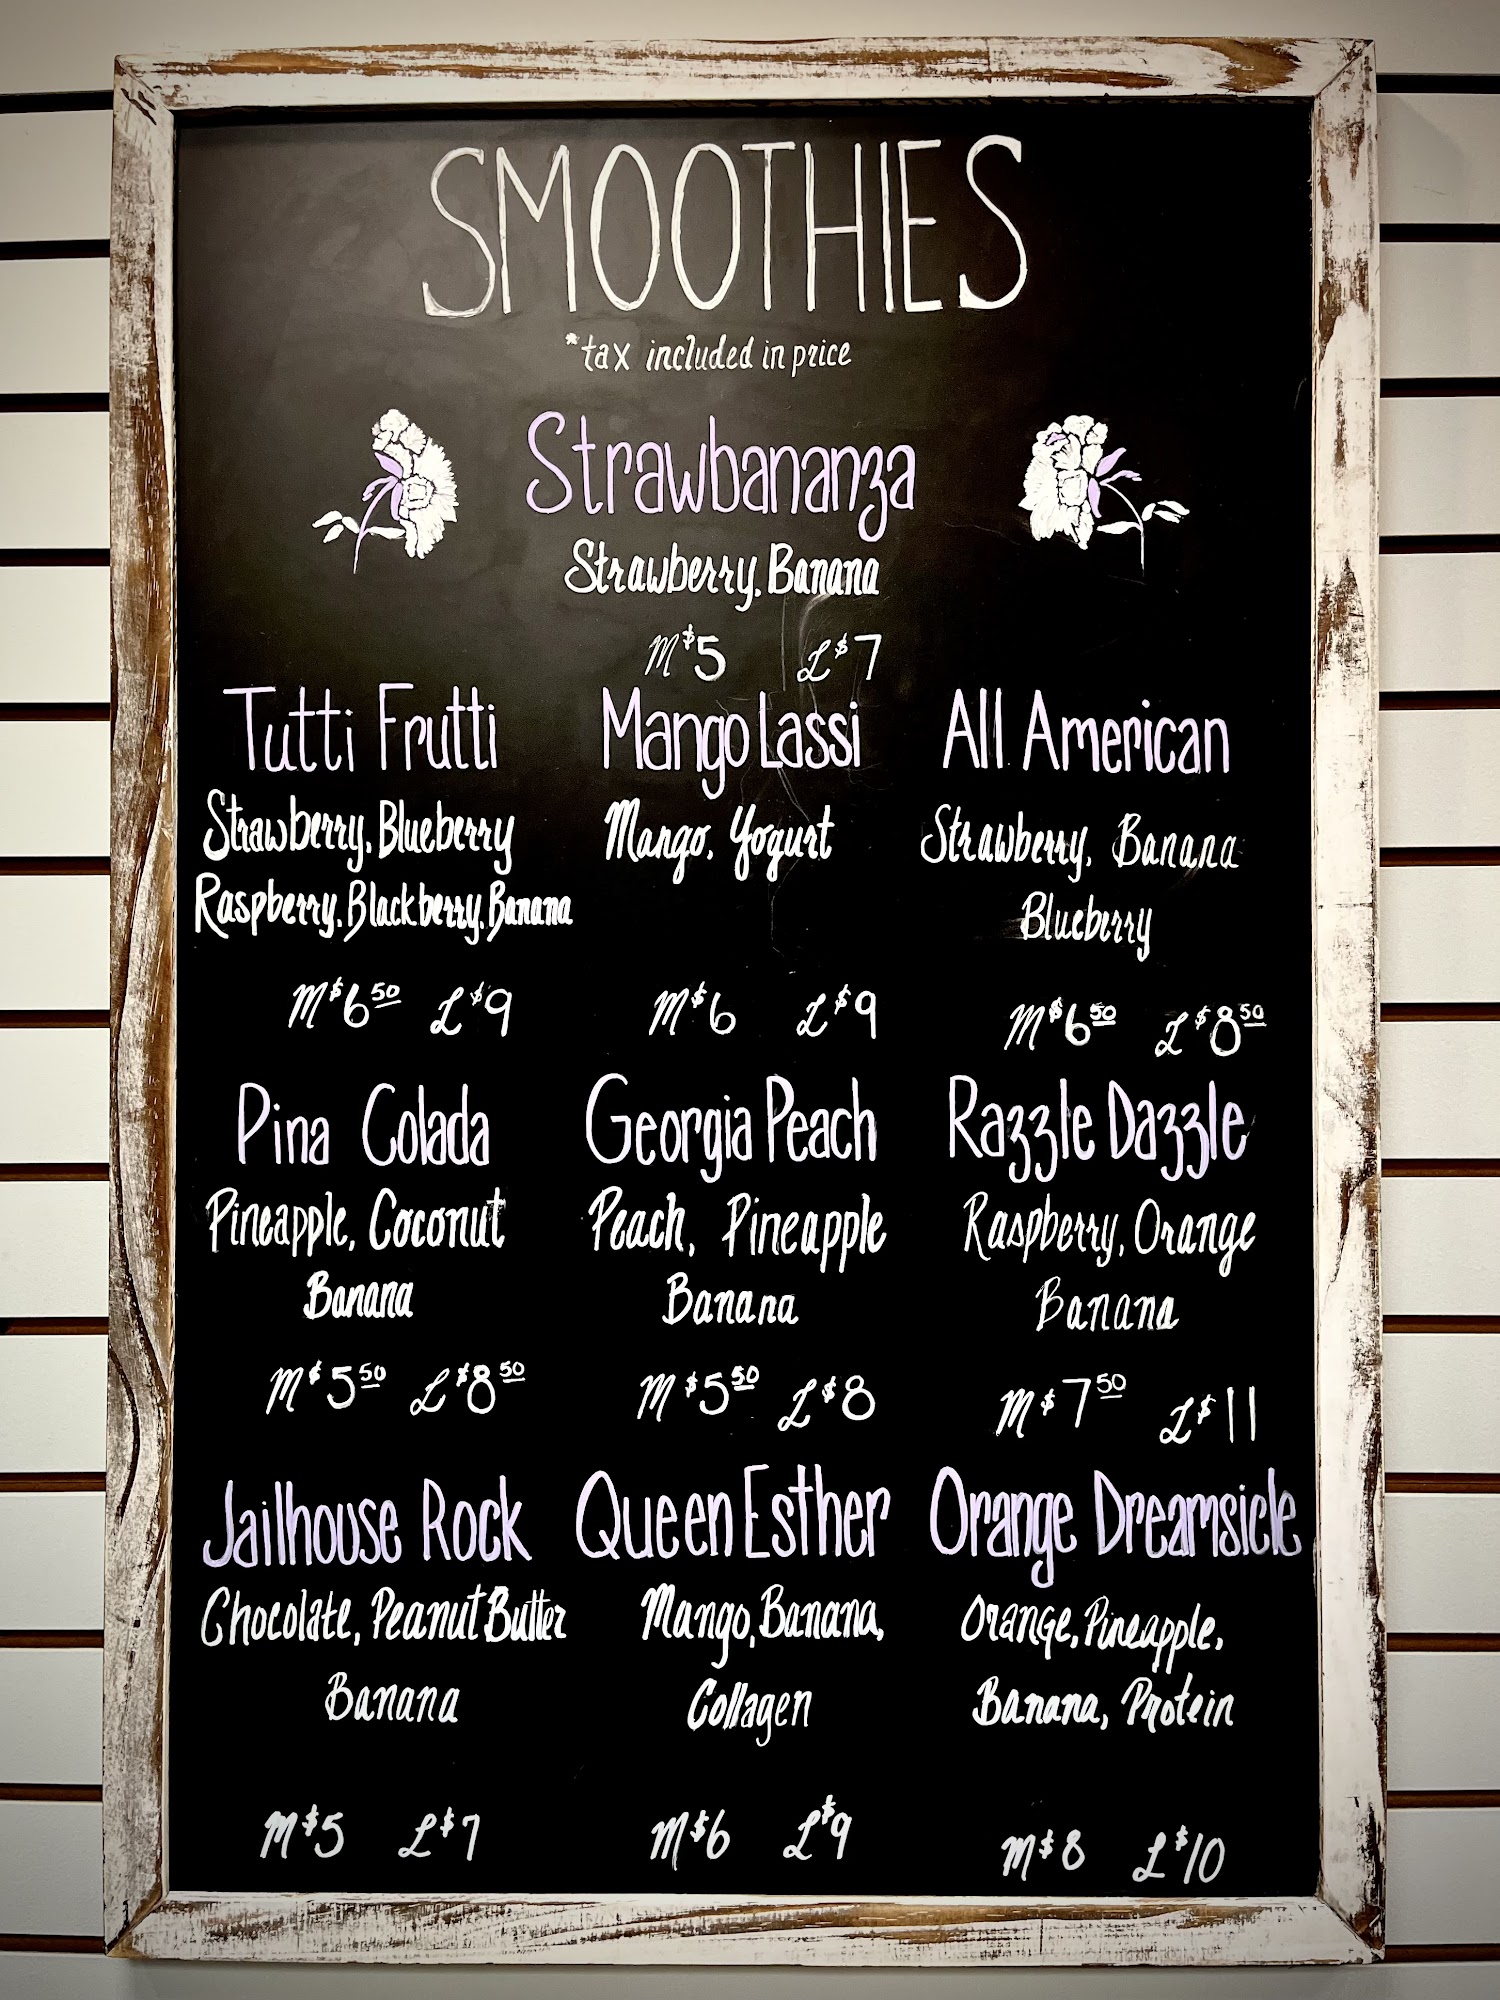 SMOOTHIES
*tax included in price
Strawbananza
Strawberry, Banana
M $5 L $7
Tutti Frutti
Strawberry, Blueberry
Raspberry, Blackberry, Banana
M $6 50 L $9
Mango Lassi
Mango, Yogurt
M $6 L $9
All American
Strawberry, Banana
Blueberry
M $6 50 L $8 50
Pina Colada
Pineapple, Coconut
Banana
M $5 50 L $8 50
Georgia Peach
Peach, Pineapple
Banana
M $5 50 L $8
Razzle Dazzle
Raspberry, Orange
Banana
M $7 50 L $11
Jailhouse Rock
Chocolate, Peanut Butter
Banana
M $5 L $7
Queen Esther
Mango, Banana,
Collagen
M $6 L $9
Orange Dreamsicle
Orange, Pineapple,
Banana, Protein
M $8 L $10